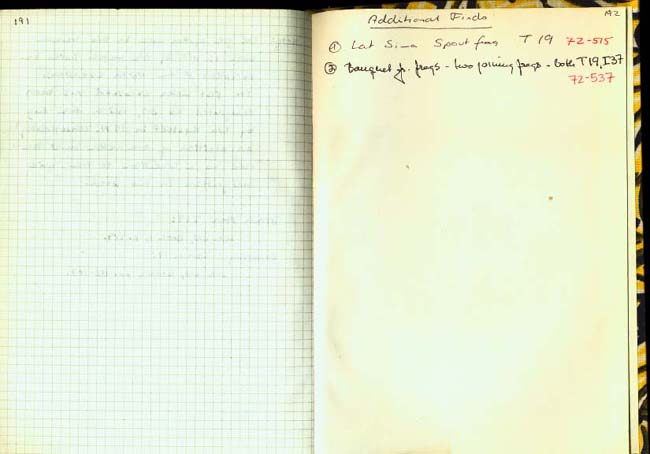 191
192
Additional Finds
① Lat Sima Spout frag T 19 72-515
② Banquet fr. frags - two joining frags - both T19, I37
72-537